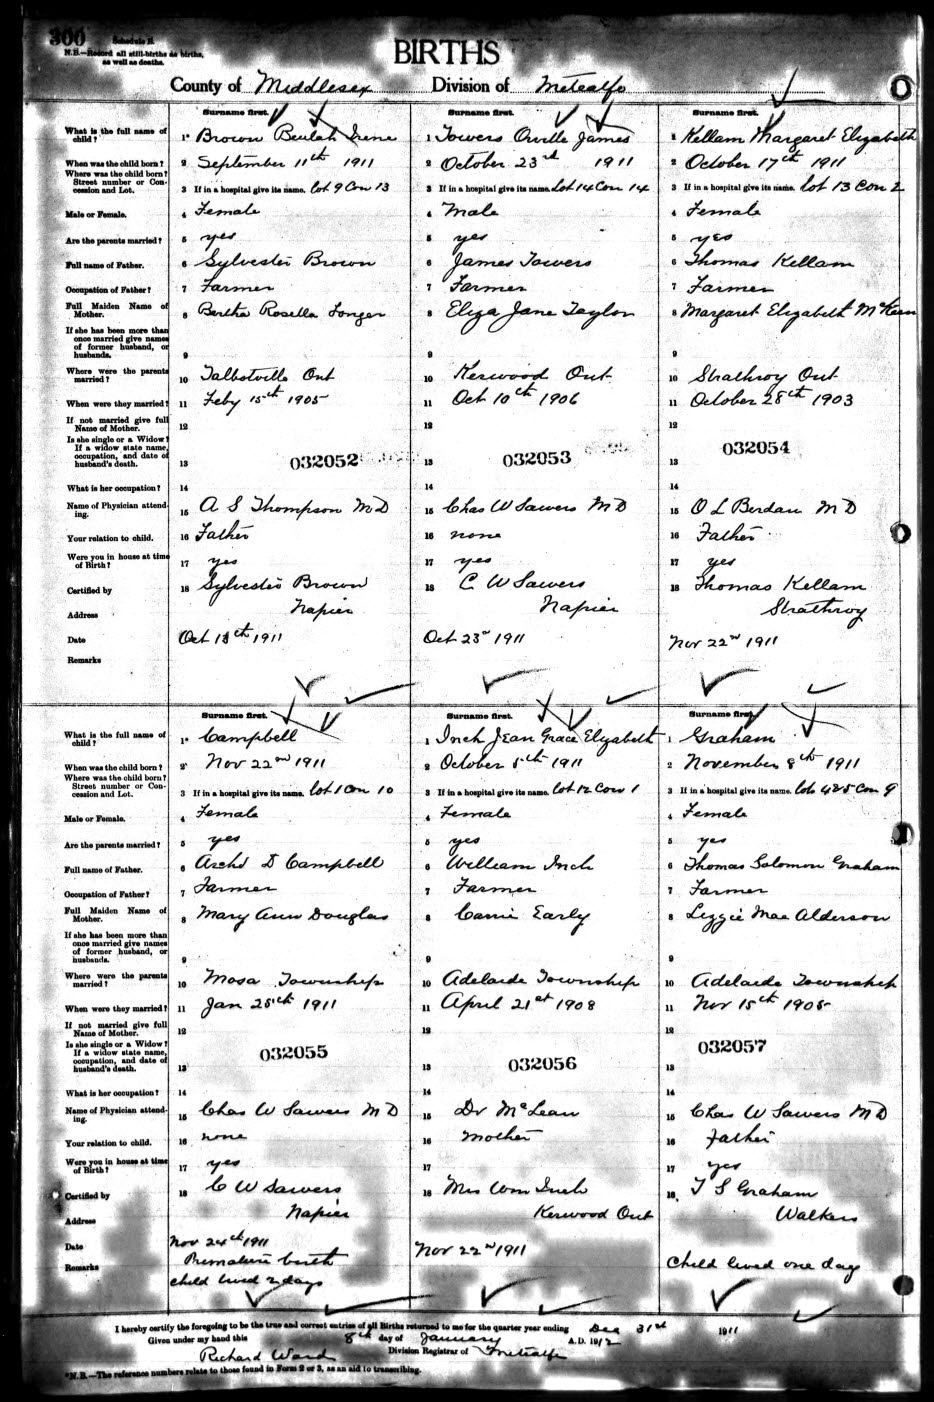 300
Schedule B.
N.B.—Record all still-births as births, as well as deaths.
BIRTHS
County of Middlesex Division of Metcalfe
Surname first. Surname first. Surname first.
What is the full name of child? 1* Brown Beulah Irene 1 Towers Orville James 1 Kellam Margaret Elizabeth
When was the child born? 2 September 11th 1911 2 October 23rd 1911 2 October 17th 1911
Where was the child born? Street number or Concession and Lot. 3 If in a hospital give its name. Lot 9 Con 13 3 If in a hospital give its name. Lot 14 Con 14 3 If in a hospital give its name. Lot 13 Con 2
Male or Female. 4 Female 4 Male 4 Female
Are the parents married? 5 yes 5 yes 5 yes
Full name of Father. 6 Sylvester Brown 6 James Towers 6 Thomas Kellam
Occupation of Father? 7 Farmer 7 Farmer 7 Farmer
Full Maiden Name of Mother. 8 Bertha Rosella Longer 8 Eliza Jane Taylor 8 Margaret Elizabeth McKeen
If she has been more than once married give names of former husband, or husbands. 9 9 9
Where were the parents married? 10 Talbotville Ont 10 Kerwood Ont 10 Strathroy Ont
When were they married? 11 Feby 15th 1905 11 Oct 10th 1906 11 October 28th 1903
If not married give full Name of Mother. 12 12 12
Is she single or a Widow? If a widow state name, occupation, and date of husband's death. 13 032052 13 032053 13 032054
What is her occupation? 14 14 14
Name of Physician attending. 15 A S Thompson MD 15 Chas W Sawers MD 15 O L Berdan MD
Your relation to child. 16 Father 16 none 16 Father
Were you in house at time of Birth? 17 yes 17 yes 17 yes
Certified by 18 Sylvester Brown 18 C W Sawers 18 Thomas Kellam
Address Napier Napier Strathroy
Date Oct 18th 1911 Oct 23rd 1911 Nov 22nd 1911
Remarks
Surname first. Surname first. Surname first.
What is the full name of child? 1* Campbell 1 Inch Jean Grace Elizabeth 1 Graham
When was the child born? 2 Nov 22nd 1911 2 October 5th 1911 2 November 8th 1911
Where was the child born? Street number or Concession and Lot. 3 If in a hospital give its name. Lot 1 Con 10 3 If in a hospital give its name. Lot 12 Con 1 3 If in a hospital give its name. Lots 4&5 Con 9
Male or Female. 4 Female 4 Female 4 Female
Are the parents married? 5 yes 5 yes 5 yes
Full name of Father. 6 Archd D Campbell 6 William Inch 6 Thomas Solomon Graham
Occupation of Father? 7 Farmer 7 Farmer 7 Farmer
Full Maiden Name of Mother. 8 Mary Ann Douglas 8 Carrie Early 8 Lizzie Mae Alderson
If she has been more than once married give names of former husband, or husbands. 9 9 9
Where were the parents married? 10 Mosa Township 10 Adelaide Township 10 Adelaide Township
When were they married? 11 Jan 25th 1911 11 April 21st 1908 11 Nov 15th 1905
If not married give full Name of Mother. 12 12 12
Is she single or a Widow? If a widow state name, occupation, and date of husband's death. 13 032055 13 032056 13 032057
What is her occupation? 14 14 14
Name of Physician attending. 15 Chas W Sawers MD 15 Dr McLean 15 Chas W Sawers MD
Your relation to child. 16 none 16 Mother 16 Father
Were you in house at time of Birth? 17 yes 17 17 yes
Certified by 18 C W Sawers 18 Mrs Wm Inch 18 T S Graham
Address Napier Kerwood Ont Walkers
Date Nov 24th 1911 Nov 22nd 1911
Remarks Premature birth child lived 2 days Child lived one day
I hereby certify the foregoing to be the true and correct entries of all Births returned to me for the quarter year ending Dec 31st 1911
Given under my hand this 8th day of January A.D. 1912
Richard Ward Division Registrar of Metcalfe
*N.B.—The reference numbers relate to those found in Form 2 or 3, as an aid to transcribing.